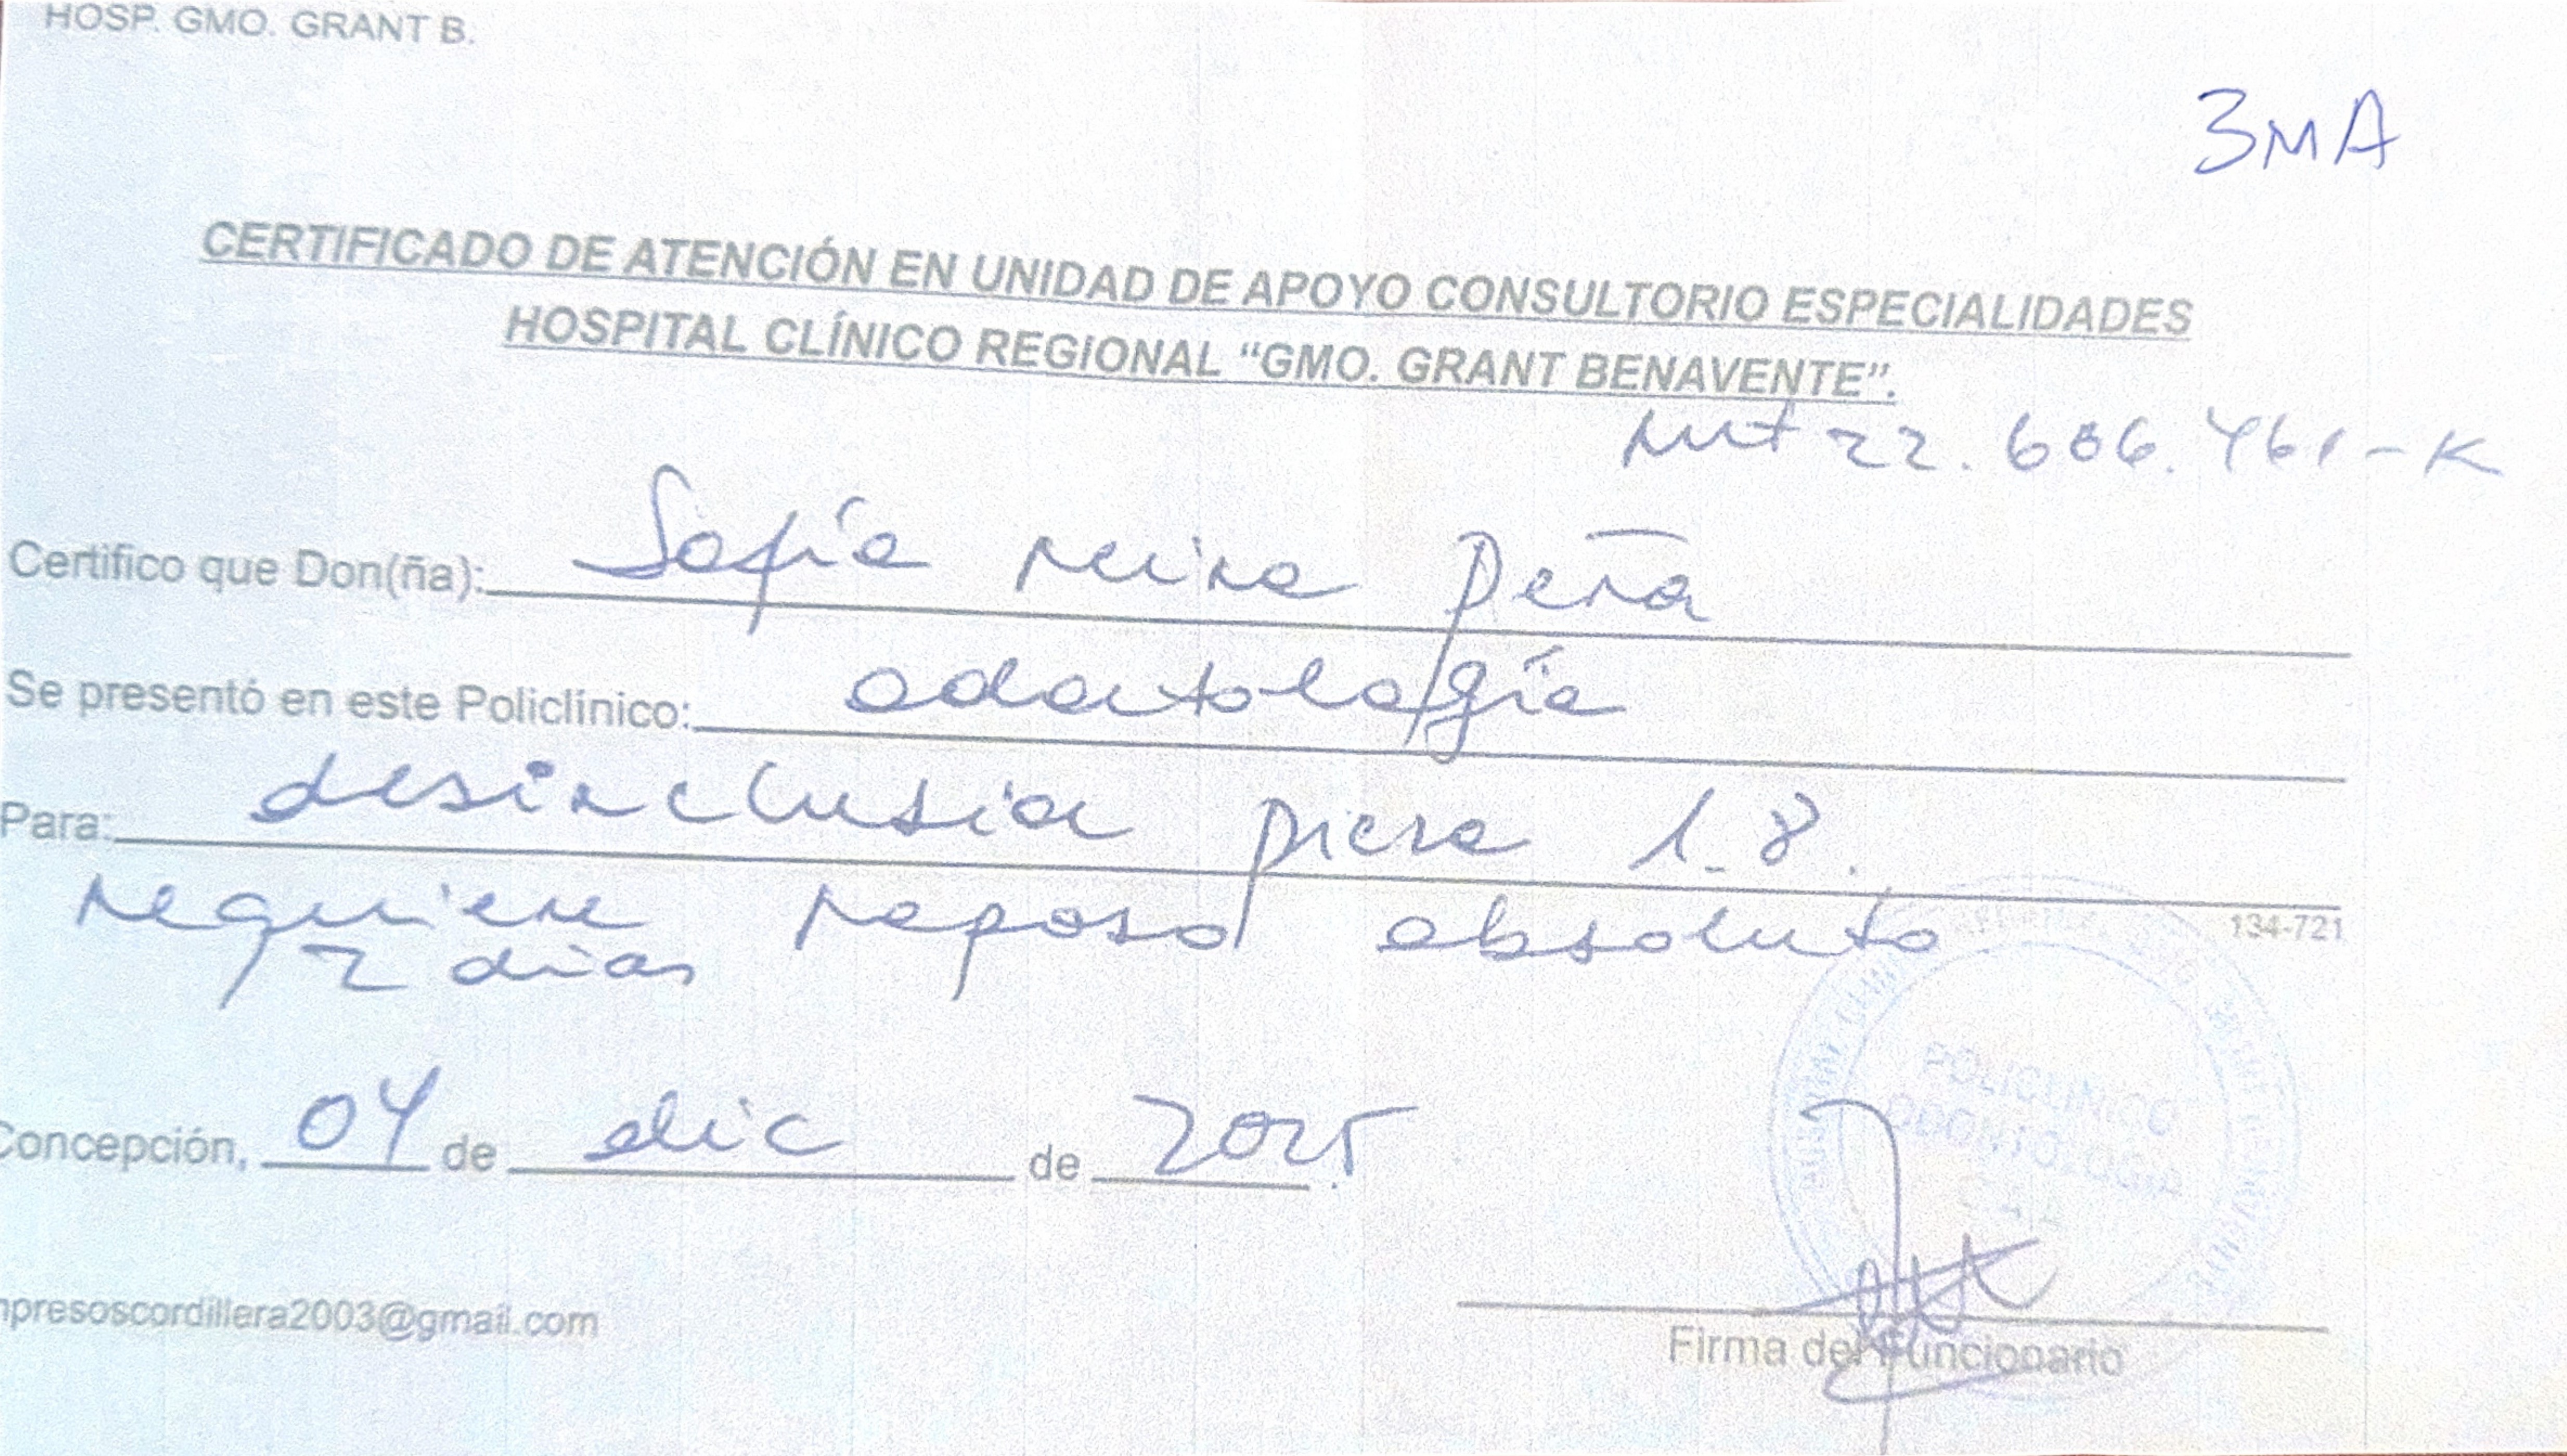 HOSP. GMO. GRANT B.
3MA
CERTIFICADO DE ATENCIÓN EN UNIDAD DE APOYO CONSULTORIO ESPECIALIDADES
HOSPITAL CLÍNICO REGIONAL “GMO. GRANT BENAVENTE”.
Rut 22.606.461-K
Certifico que Don(ña): Sofía Peña
Se presentó en este Policlínico: odontología
Para: desinclusión pieza 1.8.
134-721
requiere reposo absoluto
2 días
POLICLINICO
ODONTOLOGIA
Concepción, 04 de dic de 2025.
mpresoscordillera2003@gmail.com
Firma del Funcionario